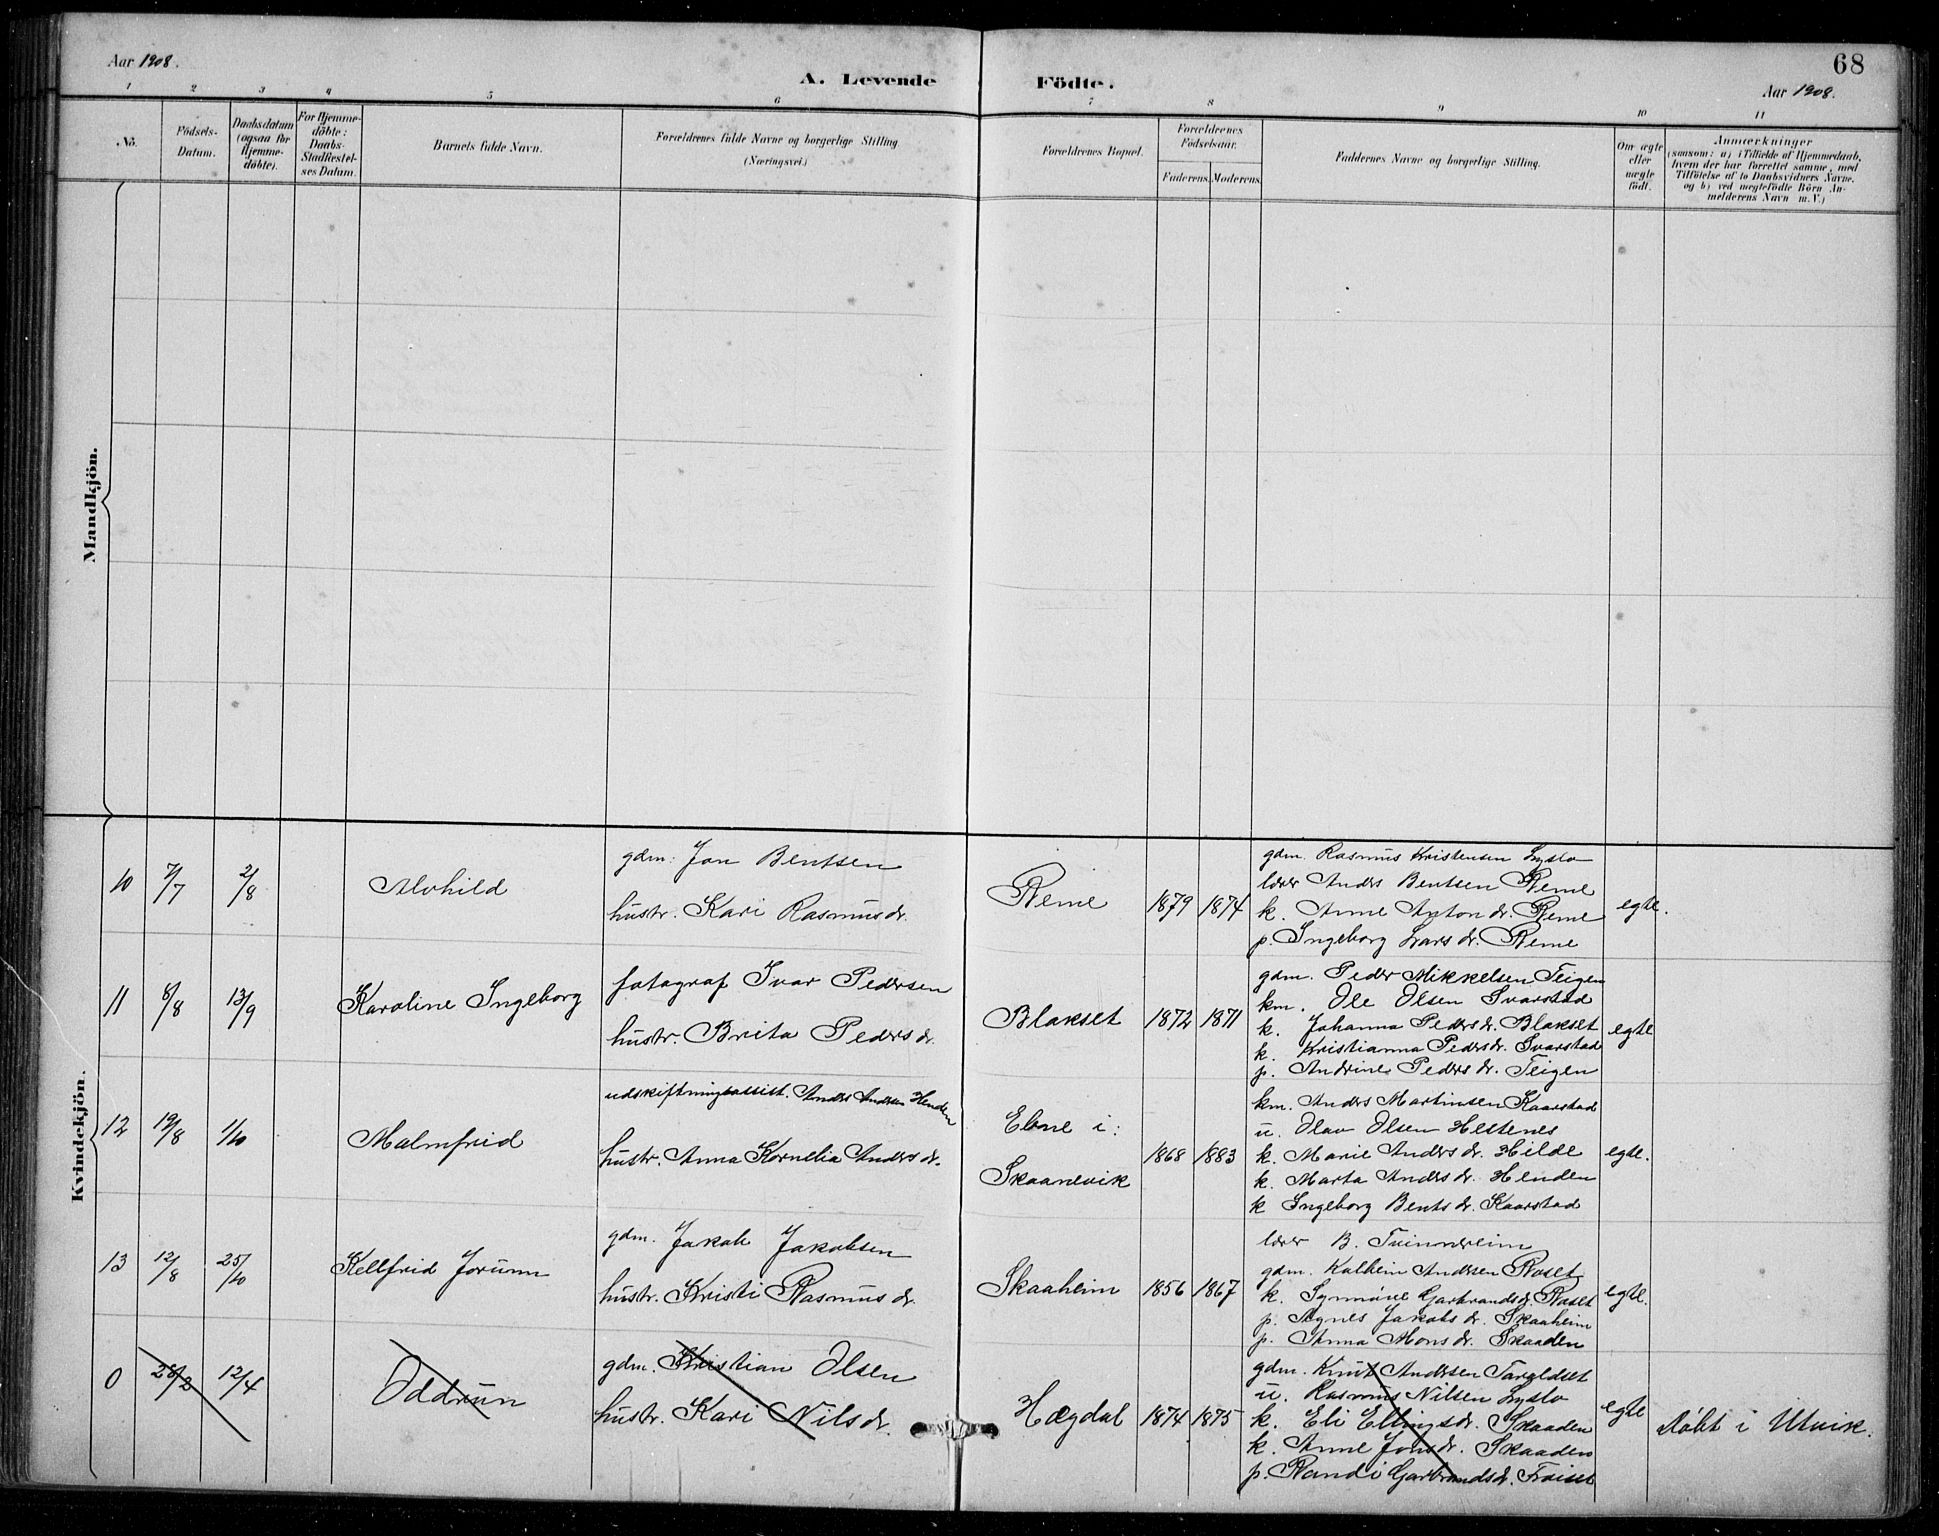 68
Aar 1908.
A. Levende Födte.
Aar 1908.
1 2 3 4 5 6 7 8 9 10 11
No.
Födsels-Datum.
Daabsdatum (ogsaa for Hjemme-döbte).
For Hjemme-döbte: Daabs-Stadfæstel-ses Datum.
Barnets fulde Navn.
Forældrenes fulde Navne og borgerlige Stilling (Næringsvei.)
Forældrenes Bopæl.
Forældrenes Födselsaar.
Faderens. Moderens.
Faddernes Navne og borgerlige Stilling.
Om ægte eller uægte födt.
Anmærkninger
(saasom: a) i Tilfælde af Hjemmedaab, hvem der har forrettet samme, med Tilföielse af to Daabsvidners Navne, og b) ved uægtefödte Börn An-melderens Navn m. V.)
Mandkjön.
Kvindekjön.
10 7/7 2/8 Alvhild
gdm. Jon Bentsen
hustr. Kari Rasmusdr.
Reme 1879 1874
gdm. Rasmus Kristensen Lysto
lærer Anders Bentsen Reme
k. Anne Antondr. Reme
p. Ingeborg Larsdr. Reme
egte.
11 8/8 13/9 Karoline Ingeborg
fotograf Ivar Pedersen
hustr. Brita Pedersdr.
Blakset 1872 1871
gdm. Peder Mikkelsen Teigen
km. Ole Olsen Svarstad
k. Johanna Pedersdr. Blakset
k. Kristianna Pedersdr. Svarstad
p. Andrine Pedersdr. Teigen
egte
12 19/8 1/10 Malmfrid
udskiftningsassist. Anders Andersen Henden
hustr. Anna Kornelia Andersdr.
Ebne i:
Skaanevik 1868 1883
km. Anders Martinsen Kaarstad
u. Olav Olsen Hestenes
k. Marie Andersdr. Hilde
k. Marta Andersdr. Henden
k Ingeborg Bentsdr. Kaarstad
egte.
13 12/8 25/10 Kellfrid Jorunn
gdm. Jakob Jakobsen
hustr. Kristi Rasmusdr.
Skaaheim 1856 1867
lærer B. Tvinnereim
gdm. Andersen Roset
k. Synnøve Garbrandsdr. Roset
p. Agnes Jakobsdr. Skaaheim
p. Anna Monsdr. Skaaden
egte.
0 28/2 12/4 Oddrun
gdm. Kristian Olsen
hustr. Kari Nilsdr.
Hægdal 1874 1875
gdm. Knut Andersen
u. Rasmus Nilsen Lysto
k. Eli Ellingsdr. Skaaden
k. Anne Jonsdr. Skaaden
p. Randi Garbrandsdr.
egte
døbt i Utvik.